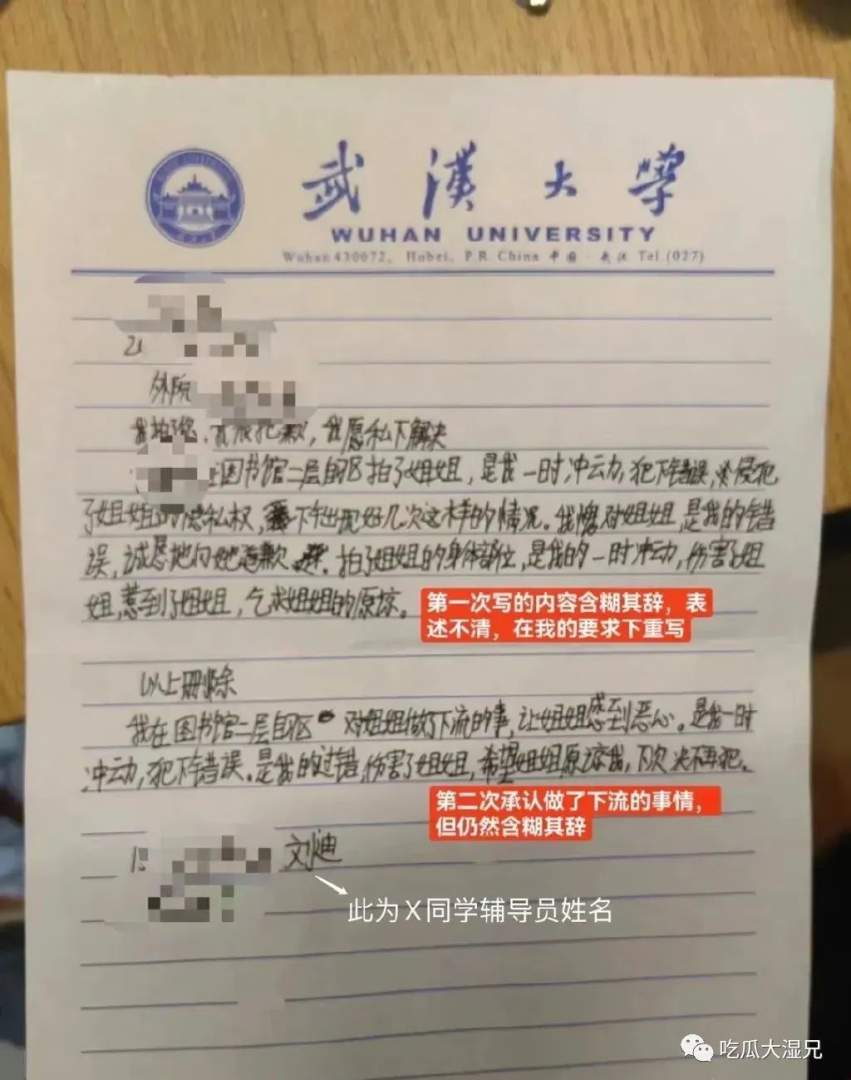 武漢大學
WUHAN UNIVERSITY
Wuhan 430072, Hubei, P.R. China 中国·武汉 Tel.(027)
外院
道歉，我愿私下解决
图书馆二层自习区拍了姐姐，是我一时冲动，犯下错误，侵犯
了姐姐的隐私权，下午出现好几次这样的情况。我愧对姐姐，是我的错
误，诚恳地向她道歉。拍了姐姐的身体部位，是我的一时冲动，伤害了姐
姐，惹到了姐姐，乞求姐姐的原谅。
第一次写的内容含糊其辞，表
述不清，在我的要求下重写
以上删除
我在图书馆二层自习区对姐姐做了下流的事，让姐姐感到恶心。是我一时
冲动，犯下错误。是我的过错，伤害了姐姐，希望姐姐原谅我，下次决不再犯。
第二次承认做了下流的事情，
但仍然含糊其辞
此为X同学辅导员姓名
吃瓜大湿兄